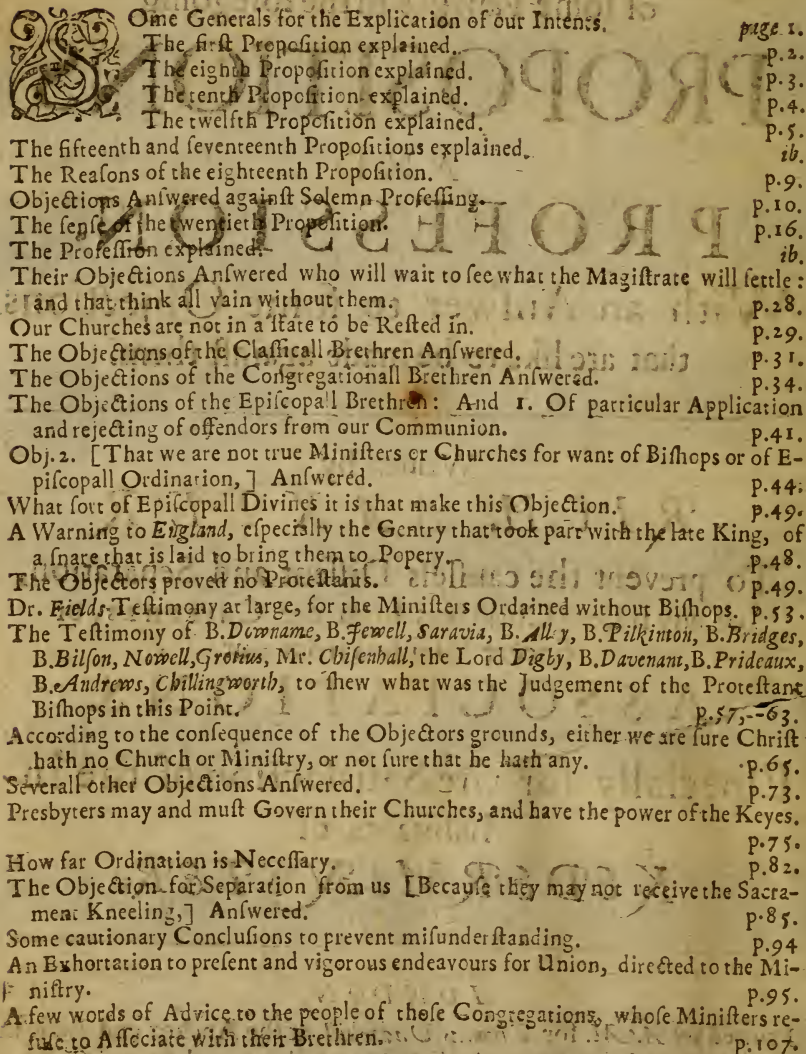 Some Generals for the Explication of our Intents. page 1.
The first Proposition explained. p.2.
The eighth Proposition explained. p.3.
The tenth Proposition explained. p.4.
The twelfth Proposition explained. p.5.
The fifteenth and seventeenth Propositions explained. ib.
The Reasons of the eighteenth Proposition. p.9.
Objections Answered against Solemn Professing. p.10.
The sense of the twentieth Proposition. p.16.
The Profession explained. ib.
Their Objections Answered who will wait to see what the Magistrate will settle:
and that think all vain without them. p.28.
Our Churches are not in a state to be Rested in. p.29.
The Objections of the Classicall Brethren Answered. p.31.
The Objections of the Congregationall Brethren Answered. p.34.
The Objections of the Episcopall Brethren: And 1. Of particular Application
and rejecting of offendors from our Communion. p.41.
Obj. 2. [That we are not true Ministers or Churches for want of Bishops or of E-
piscopall Ordinarion,] Answered. p.44.
What sort of Episcopall Divines it is that make this Objection. p.49.
A Warning to England, especially the Gentry that took part with the late King, of
a snare that is laid to bring them to Popery. p.48.
The Objectors proved no Protestants. p.49.
Dr. Fields Testimony at large, for the Ministers Ordained without Bishops. p.53.
The Testimony of B.Downame, B.Jewell, Saravia, B.Alley, B.Pilkinton, B.Bridges,
B.Bilson, Nowell, Grotius, Mr. Chisenhall, the Lord Digby, B.Davenant, B.Prideaux,
B.Andrews, Chillingworth, to shew what was the Judgement of the Protestant
Bishops in this Point. p.57,--63.
According to the consequence of the Objectors grounds, either we are sure Christ
hath no Church or Ministry, or not sure that he hath any. p.65.
Severall other Objections Answered. p.73.
Presbyters may and must Govern their Churches, and have the power of the Keyes.
p.75.
How far Ordination is Necessary. p.82.
The Objection for Separation from us [Because they may not receive the Sacra-
ment Kneeling,] Answered. p.85.
Some cautionary Conclusions to prevent misunderstanding. p.94
An Exhortation to present and vigorous endeavours for Union, directed to the Mi-
nistry. p.95.
A few words of Advice to the people of those Congregations, whose Ministers re-
fuse to Associate with their Brethren. p.107.